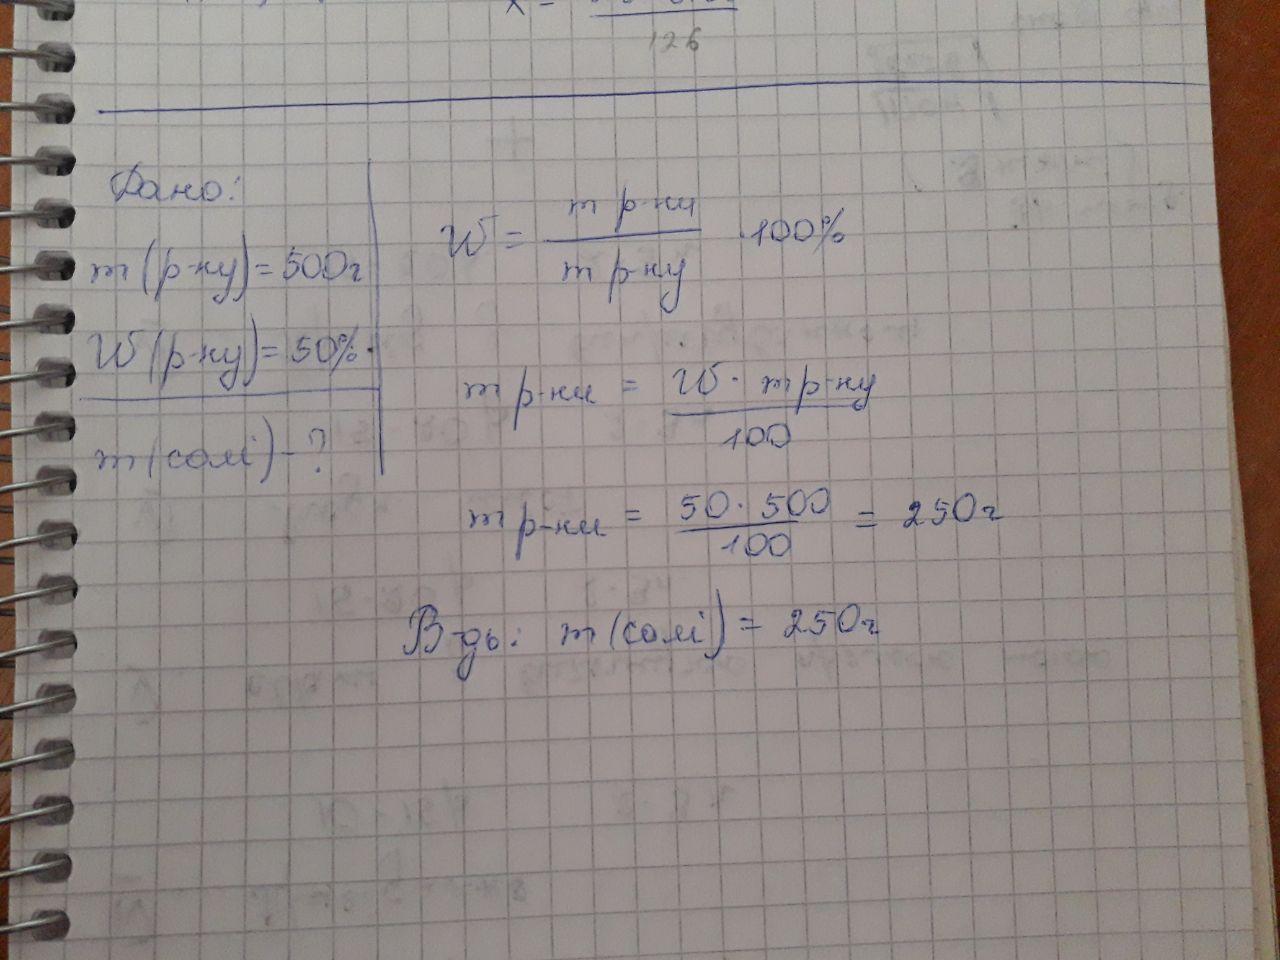 126
Дано:
m(р-ну)=500г
W(р-ну)=50%.
m(солі)-?
W = m р-ни / m р-ну · 100%
m р-ни = W · m р-ну / 100
m р-ни = 50 · 500 / 100 = 250г
В-дь: m(солі) = 250г